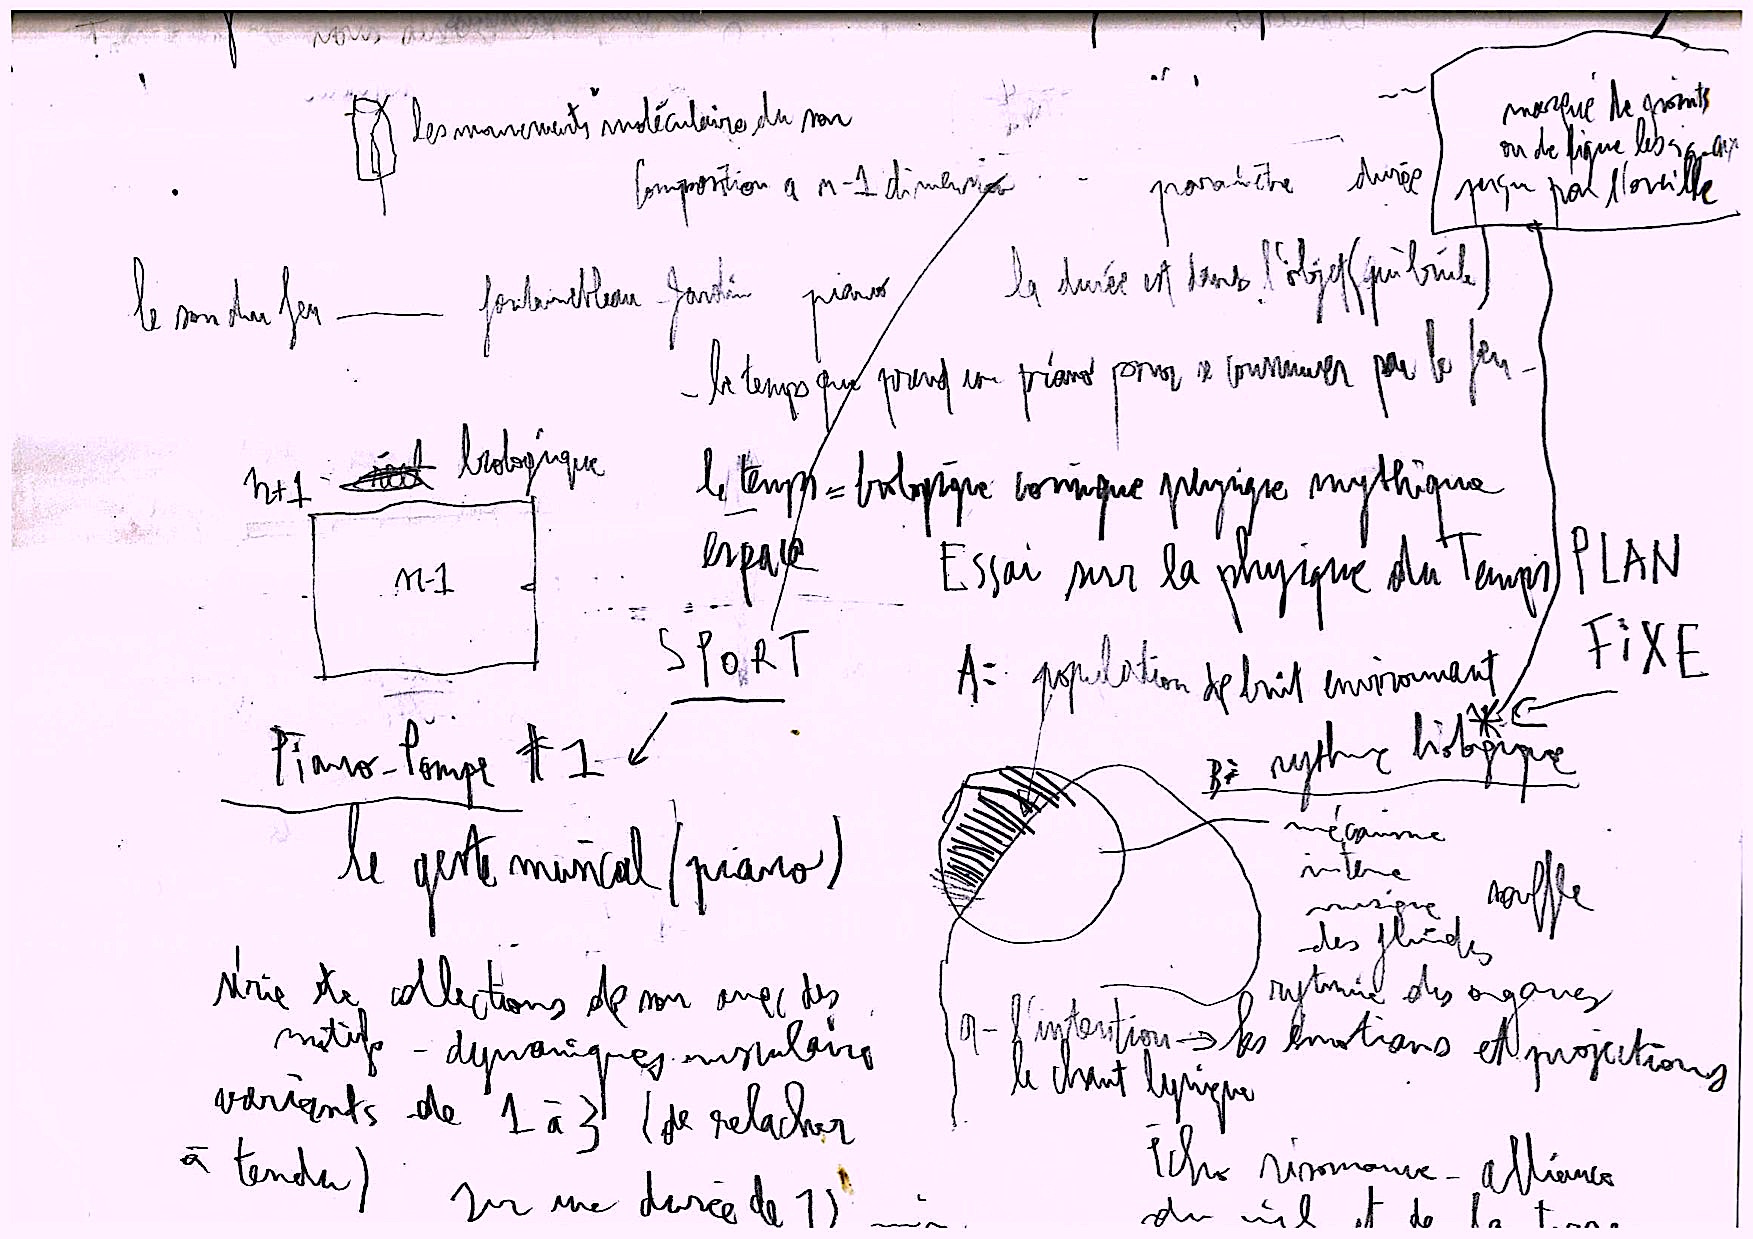 les mouvements moléculaire du son
marqué de points
ou de ligne les signaux
perçu par l'oreille
Composition a n-1 dimension - paramètre durée
le son du feu — fontainebleau Jardin piano la durée est dans l'objet (qui brule)
- le temps que prend un piano pour se consummer par le feu -
n+1 biologique
n-1
le temps = biologique cosmique physique mythique
espace
Essai sur la physique du Temps
PLAN
FiXE
SPORT
A= population de bruit environnant
Piano-Pompe #1
B= rythme biologique
le geste musical (piano)
mécanisme
interne
musique
des fluides
souffle
rytmie des organes
série de collections de son avec des
motifs - dynamiques musculaire
variants de 1 à 3 (de relacher
à tendu)
sur une durée de
a- l'intention → les émotions et projections
le chant lyrique
Echo résonnance - alliance
du ciel et de la terre